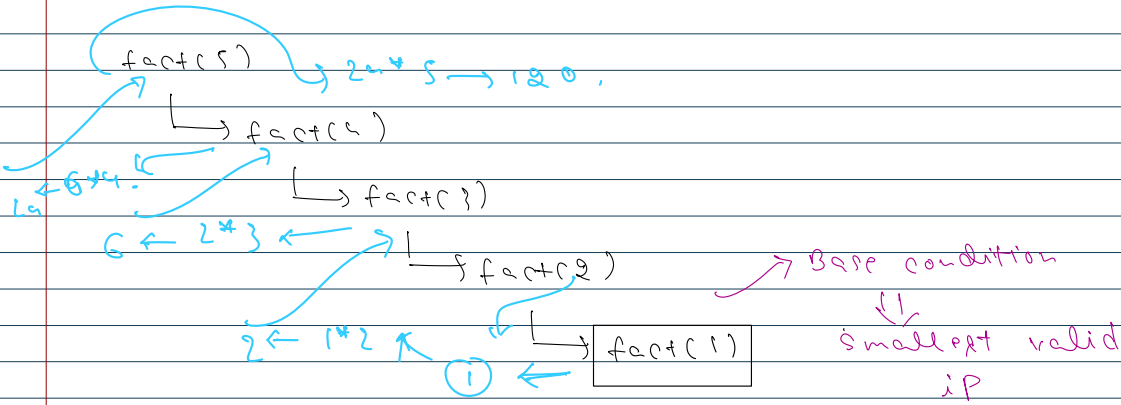 fact(5)
24*5 → 120.
fact(4)
24 ← 6*4.
fact(3)
6 ← 2*3 ←
fact(2)
Base condition
2 ← 1*2
fact(1)
smallest valid
1 ←
ip